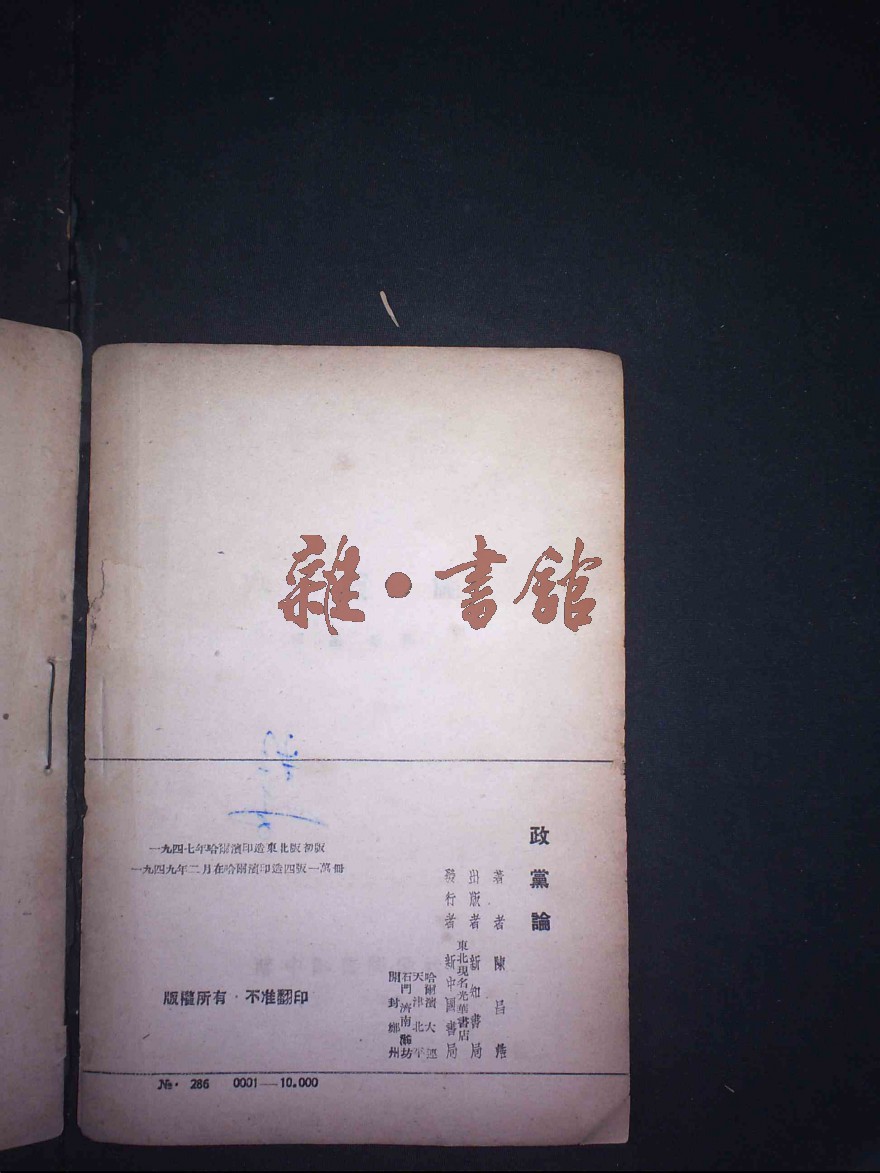 雜·書館
政黨論
著者 陳昌
出版者 新知書局
東北現名光華書店
發行者 新中國書局
哈爾濱 大連
天津 北平
石門 濟南 濰坊
開封 鄭州
一九四七年哈爾濱印造東北版初版
一九四九年二月在哈爾濱印造四版一萬冊
版權所有・不准翻印
№· 286 0001—10.000